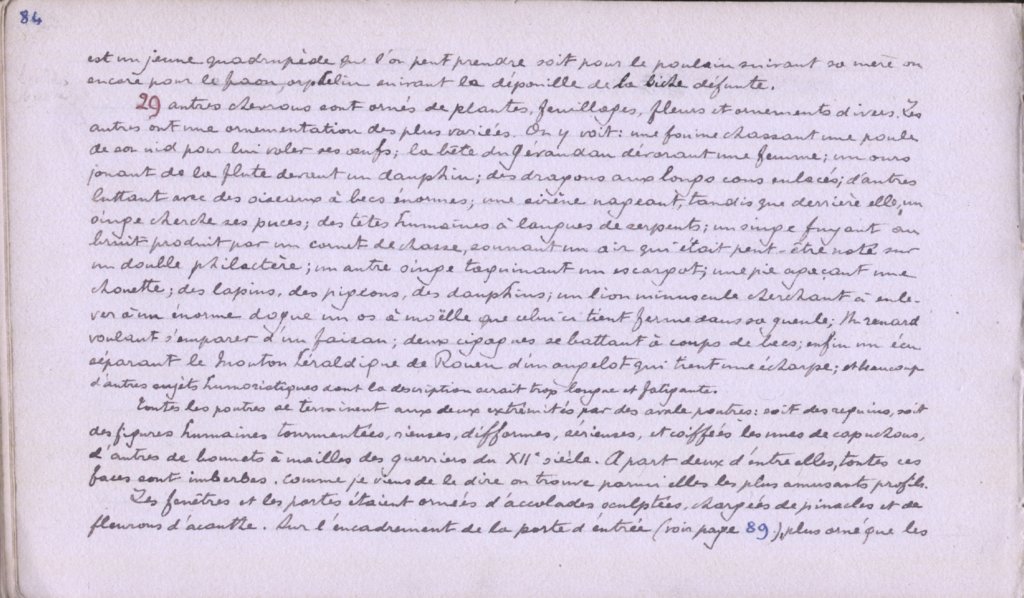 84
est un jeune quadrupède que l'on peut prendre soit pour le poulain suivant sa mère ou
encore pour le faon, orphelin suivant la dépouille de la biche défunte.
29 autres chevrons sont ornés de plantes, feuillages, fleurs et ornements divers. Les
autres ont une ornementation des plus variées. On y voit: une fouine chassant une poule
de son nid pour lui voler ses œufs; la bête du Gévaudan dévorant une femme; un ours
jouant de la flute devant un dauphin; des dragons aux longs cous enlacés; d'autres
luttant avec des oiseaux à becs énormes; une sirène nageant, tandis que derrière elle, un
singe cherche ses puces; des têtes humaines à langues de serpents; un singe fuyant au
bruit produit par un cornet de chasse, sonnant un air qui était peut-être noté sur
un double philactère; un autre singe taquinant un escargot; une pie agaçant une
chouette; des lapins, des pigeons, des dauphins; un lion minuscule cherchant à enle-
ver à un énorme dogue un os à moëlle que celui ci tient ferme dans sa gueule; Un renard
voulant s'emparer d'un faisan; deux cigognes se battant à coups de becs; enfin un écu
séparant le mouton héraldique de Rouen d'un angelot qui tient une écharpe; et beaucoup
d'autres sujets humoristiques dont la description serait trop longue et fatigante.
Toutes les poutres se terminent aux deux extrémités par des avale poutres: soit des requins, soit
des figures humaines tourmentées, rieuses, difformes, sérieuses, et coiffées les unes de capuchons,
d'autres de bonnets à mailles des guerriers du XIIe siècle. A part deux d'entre elles, toutes ces
faces sont imberbes. Comme je viens de le dire on trouve parmi elles les plus amusants profils.
Les fenêtres et les portes étaient ornées d'accolades sculptées, chargées de pinacles et de
fleurons d'acanthe. Sur l'encadrement de la porte d'entrée (voir page 89), plus orné que les